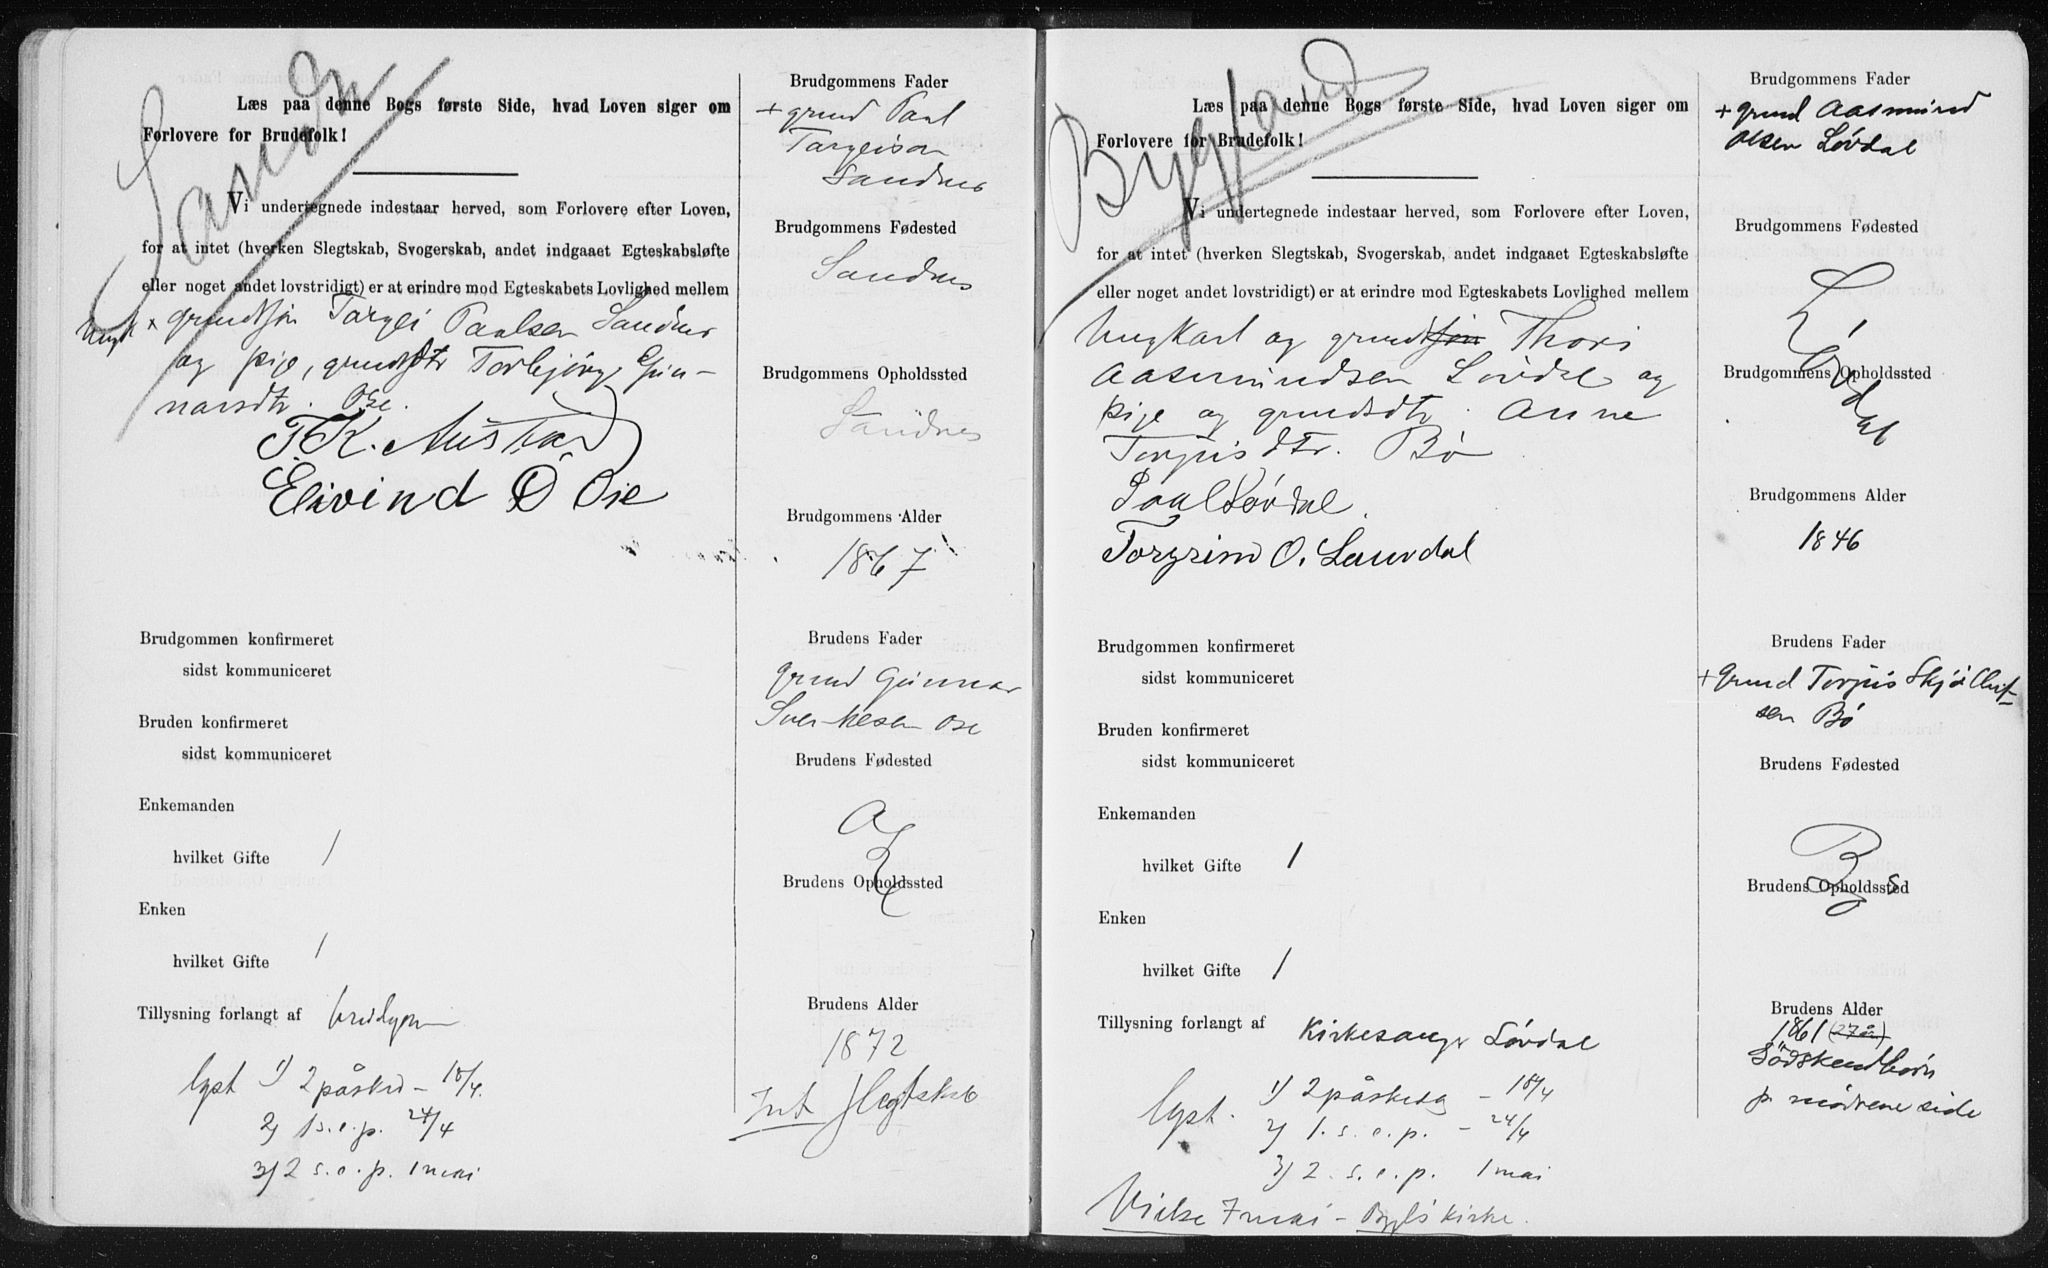 Læs paa denne Bogs første Side, hvad Loven siger om
Forlovere for Brudefolk!
Vi undertegnede indestaar herved, som Forlovere efter Loven,
for at intet (hverken Slegtskab, Svogerskab, andet indgaaet Egteskabsløfte
eller noget andet lovstridigt) er at erindre mod Egteskabets Lovlighed mellem
Ungk + grundsøn Targei Paalsen Sandnes
og pige, grundsdtr Torbjørg Gun-
narsdtr. Ose.
T.K. Austad
Eivind D Ose
Brudgommen konfirmeret
sidst kommuniceret
Bruden konfirmeret
sidst kommuniceret
Enkemanden
hvilket Gifte 1
Enken
hvilket Gifte 1
Tillysning forlangt af brudgom
lyst 1) 2 påsked – 18/4.
2) 1 s. e. p. 24/4
3) 2 s. e. p. 1 mai
Brudgommens Fader
+ grund Paal
Targeison
Sandnes
Brudgommens Fødested
Sandnes
Brudgommens Opholdssted
Sandnes
Brudgommens Alder
1867
Brudens Fader
grund Gunnar
Sverkesen Ose
Brudens Fødested
Ose
Brudens Opholdssted
Brudens Alder
1872
Int Slegtskab
Bygland
Læs paa denne Bogs første Side, hvad Loven siger om
Forlovere for Brudefolk!
Vi undertegnede indestaar herved, som Forlovere efter Loven,
for at intet (hverken Slegtskab, Svogerskab, andet indgaaet Egteskabsløfte
eller noget andet lovstridigt) er at erindre mod Egteskabets Lovlighed mellem
Ungkarl og grundsøn Thors
Aasmundsen Løvdal og
pige og grundsdtr. Anne
Torjusdtr. Bø
Paal Løvdal.
Torgrim O. Lauvdal
Brudgommen konfirmeret
sidst kommuniceret
Bruden konfirmeret
sidst kommuniceret
Enkemanden
hvilket Gifte 1
Enken
hvilket Gifte 1
Tillysning forlangt af Kirkesanger Løvdal
lyst. 1) 2 påskedg – 18/4
2) 1. s. e. p. – 24/4
3) 2. s. e. p. 1 mai
Vielse 7 mai – Bygls kirke.
Brudgommens Fader
+ grund Aasmund
Olsen Løvdal
Brudgommens Fødested
Løvdal
Brudgommens Opholdssted
Brudgommens Alder
1846
Brudens Fader
+ Grund Torjus
sen Bø
Brudens Fødested
Brudens Opholdssted
Brudens Alder
1861 (27 år)
Södskendbørn
p. mødrene side